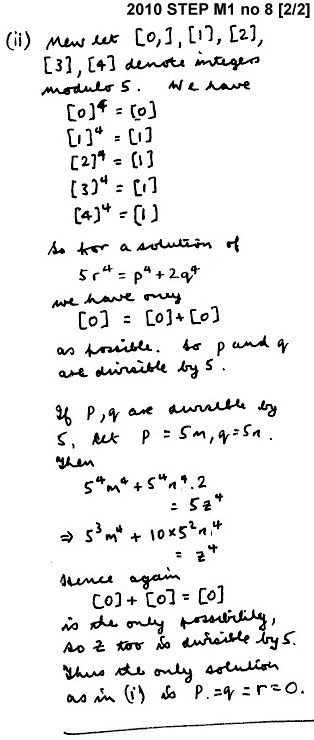 2010 STEP M1 no 8 [2/2]
(ii) New let [0,], [1], [2],
[3], [4] denote integers
modulo 5. We have
[0]⁴ = [0]
[1]⁴ = [1]
[2]⁴ = [1]
[3]⁴ = [1]
[4]⁴ = [1]
So for a solution of
5r⁴ = p⁴ + 2q⁴
we have only
[0] = [0]+[0]
as possible. So p and q
are divisible by 5.
If P, q are divisible by
5, let P = 5m, q = 5n.
Then
5⁴m⁴ + 5⁴n⁴.2
= 5z⁴
⇒ 5³m⁴ + 10×5²n⁴
= z⁴
Hence again
[0] + [0] = [0]
is the only possibility,
so z too is divisible by 5.
Thus the only solution
as in (i) is P.=q=r=0.